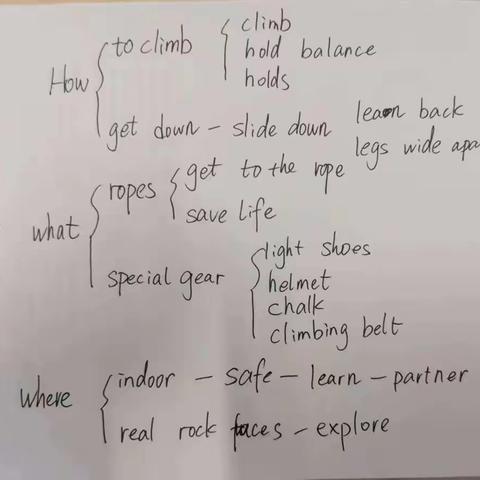 How
to climb
climb
hold balance
holds
get down - slide down
lean back
legs wide apa
what
ropes
get to the rope
save life
special gear
light shoes
helmet
chalk
climbing belt
where
indoor - safe - learn - partner
real rock faces - explore